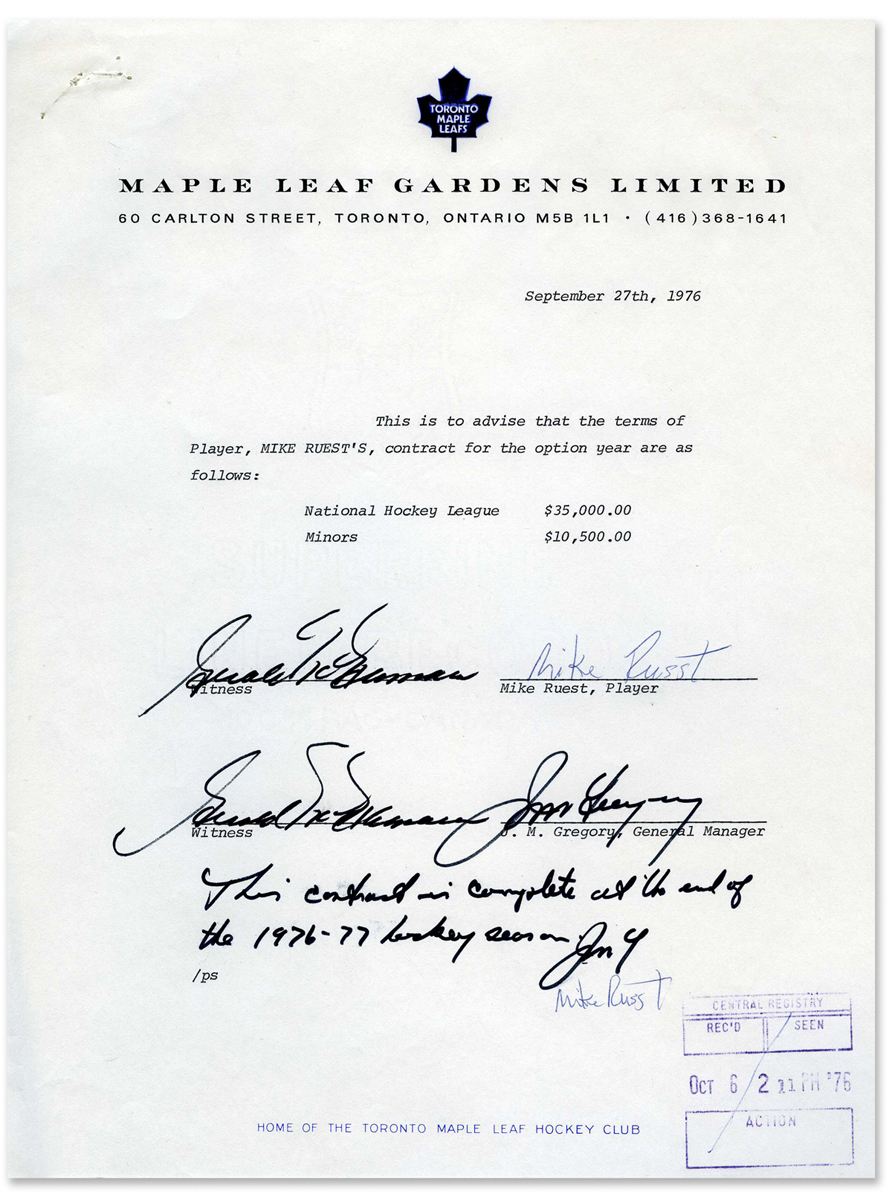 TORONTO
MAPLE
LEAFS
MAPLE LEAF GARDENS LIMITED
60 CARLTON STREET, TORONTO, ONTARIO M5B 1L1 • (416)368-1641
September 27th, 1976
This is to advise that the terms of
Player, MIKE RUEST'S, contract for the option year are as
follows:
National Hockey League $35,000.00
Minors $10,500.00
Mike Ruest
Witness Mike Ruest, Player
Witness J. M. Gregory, General Manager
This contract is complete at the end of
the 1976-77 hockey season.
/ps
Mike Ruest
CENTRAL REGISTRY
REC'D SEEN
OCT 6 2 11 PM '76
ACTION
HOME OF THE TORONTO MAPLE LEAF HOCKEY CLUB